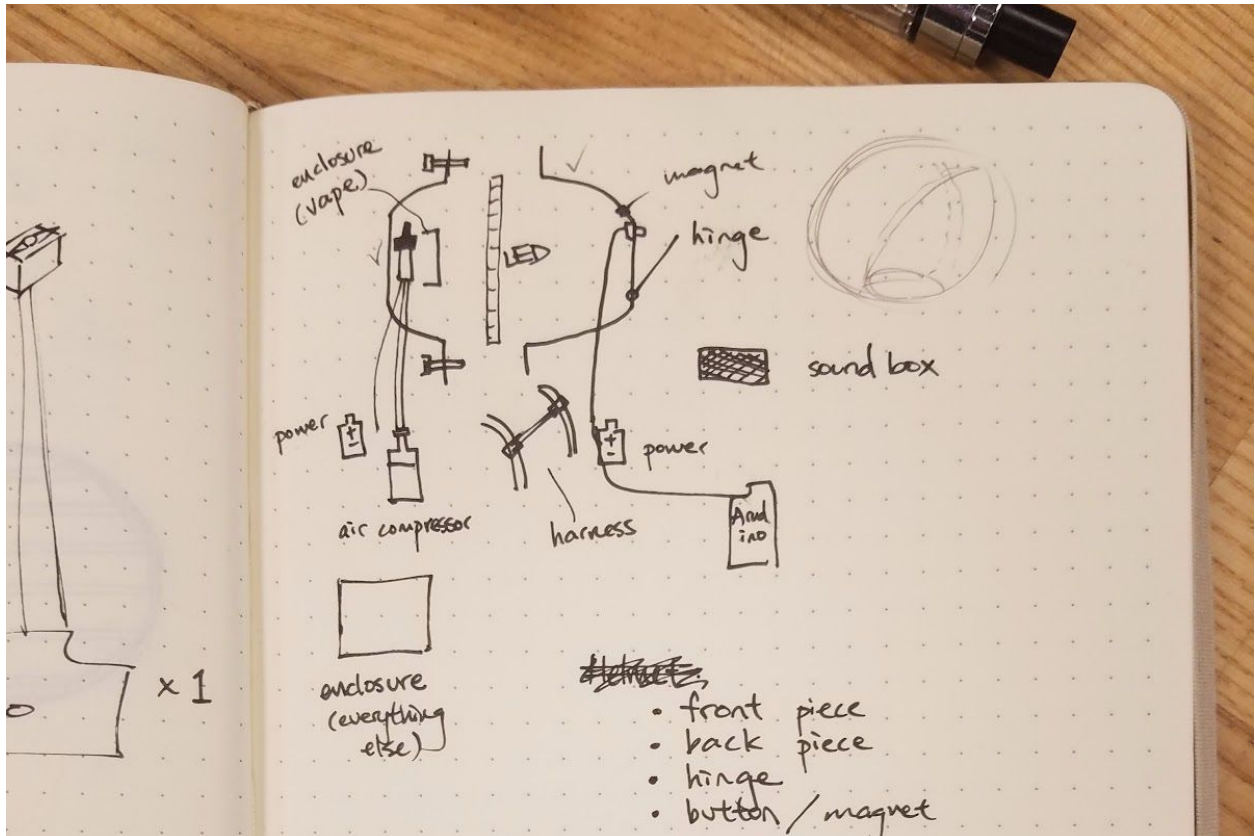 enclosure
(vape)
magnet
hinge
LED
sound box
power
+
-
+
-
power
air compressor
harness
Ard
ino
x 1
enclosure
(everything
else)
• front piece
• back piece
• hinge
• button / magnet